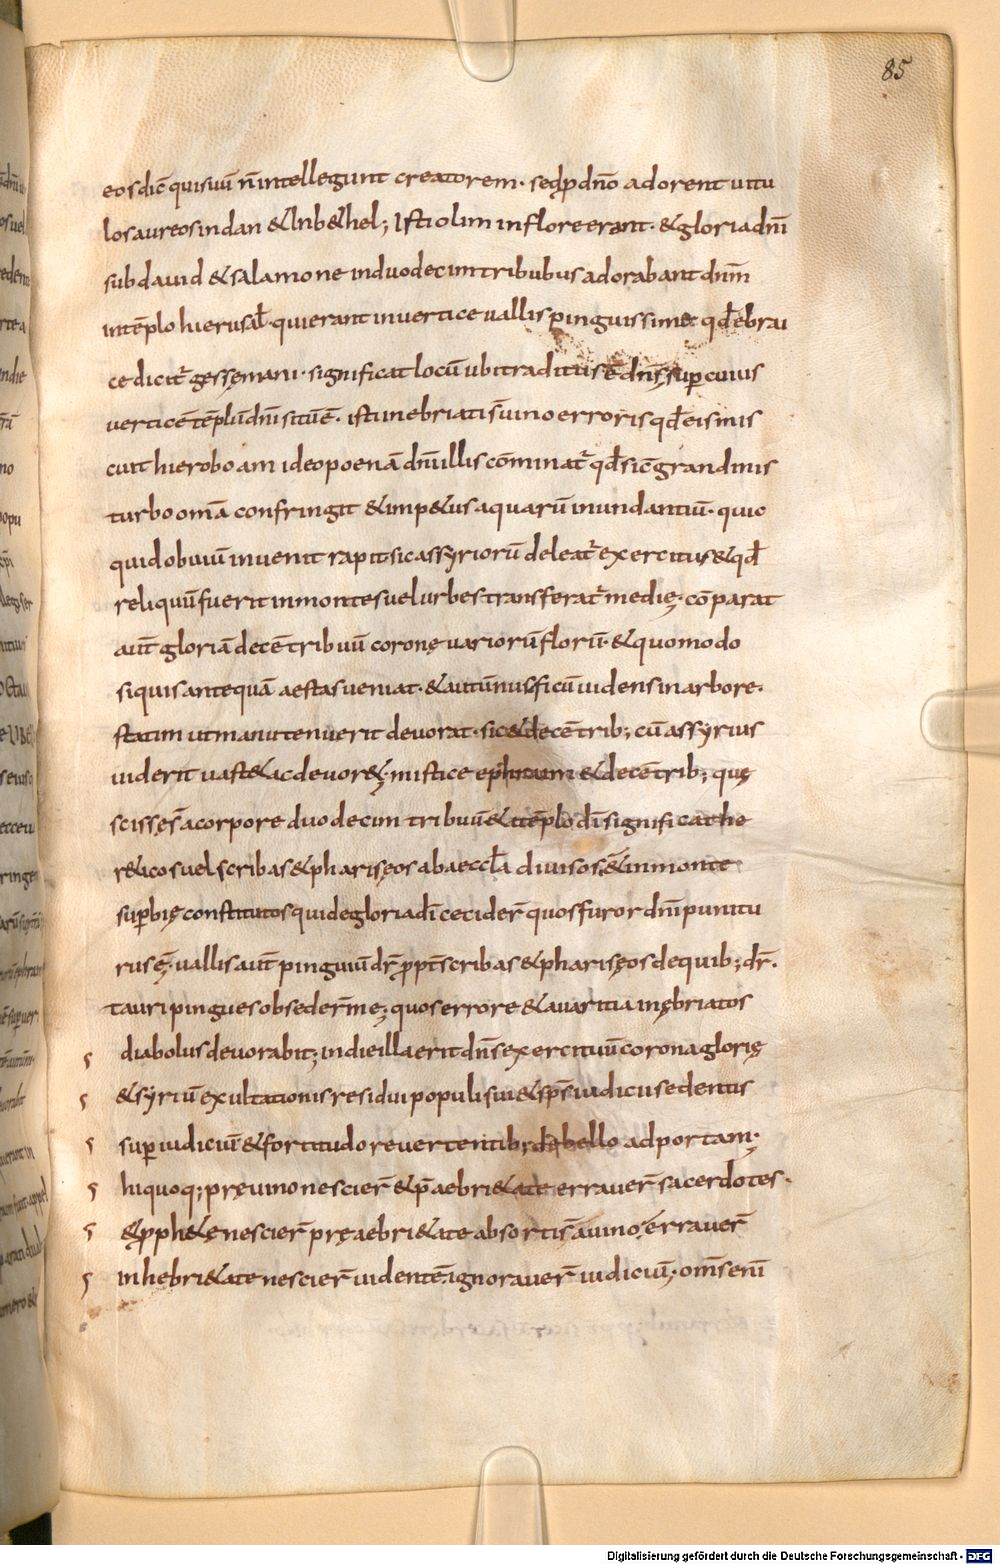 85
eos dic̄ qui suū n̄ intellegunt creatorem · sed ꝓ dn̄o adorent uitu
los aureos in dan & in b&hel; Isti olim in flore erant · & gloria dn̄i
sub dauid & salamone in duodecim tribubus adorabant dn̄m
in tēplo hierusal̄ · qui erant in uertice uallis pinguissimę qđ ebrai
ce dicit̄ gessęmani · significat locū ubi traditus ē dn̄s sup̄ cuius
uerticē tēplū dn̄i situ ē · isti inebriati s̄ uino erroris qđ eis mis
cuit hieroboam ideo poenā dn̄s illis cōminat̄ qđ sic grandinis
turbo om̄a confringit & imp&us aquarū inundantiū · quic
quid obuiū inuenit rapit sic assyriorū deleat̄ exercitus & qđ
reliquū fuerit in montes uel urbes transferat̄ medię · cōparat
aut̄ gloriā decē tribuū coronę uariorū florū · & quomodo
si quis antequā aestas ueniat · & autūnus ficū uidens in arbore ·
statim ut manu tenuerit deuorat · sic & decē trib; cū assyrius
uiderit uast& ac deuor& · mistice ephraim & decē trib; quę
scissę s̄ a corpore duodecim tribuū & tēplo dī significat he
r&icos uel scribas & phariseos ab aeccl̄a diuisos & in monte
sup̄bię constitutos qui de gloria dī cecider̄ quos furor dn̄i punitu
rus ē · uallis aut̄ pinguiū dr̄ ꝓpt̄ scribas & pharisęos de quib; dr̄ ·
tauri pingues obseder̄ me; quos errore & auaritia inębriatos
diabolus deuorabit; in die illa erit dn̄s exercituū corona glorię
& syriū exultationis residui populi sui & sp̄s iudicii sedentis
sup̄ iudiciū & fortitudo reuertentib; de bello ad portam ·
hi quoq; prę uino nescier̄ & p̄ aebri&ate errauer̄ sacerdotes ·
& ꝓph&ę nescier̄ prę aebri&ate absorti s̄ a uino errauer̄
in hebri&ate nescier̄ uidentē ignorauer̄ iudiciū · om̄s enī
Digitalisierung gefördert durch die Deutsche Forschungsgemeinschaft - DFG